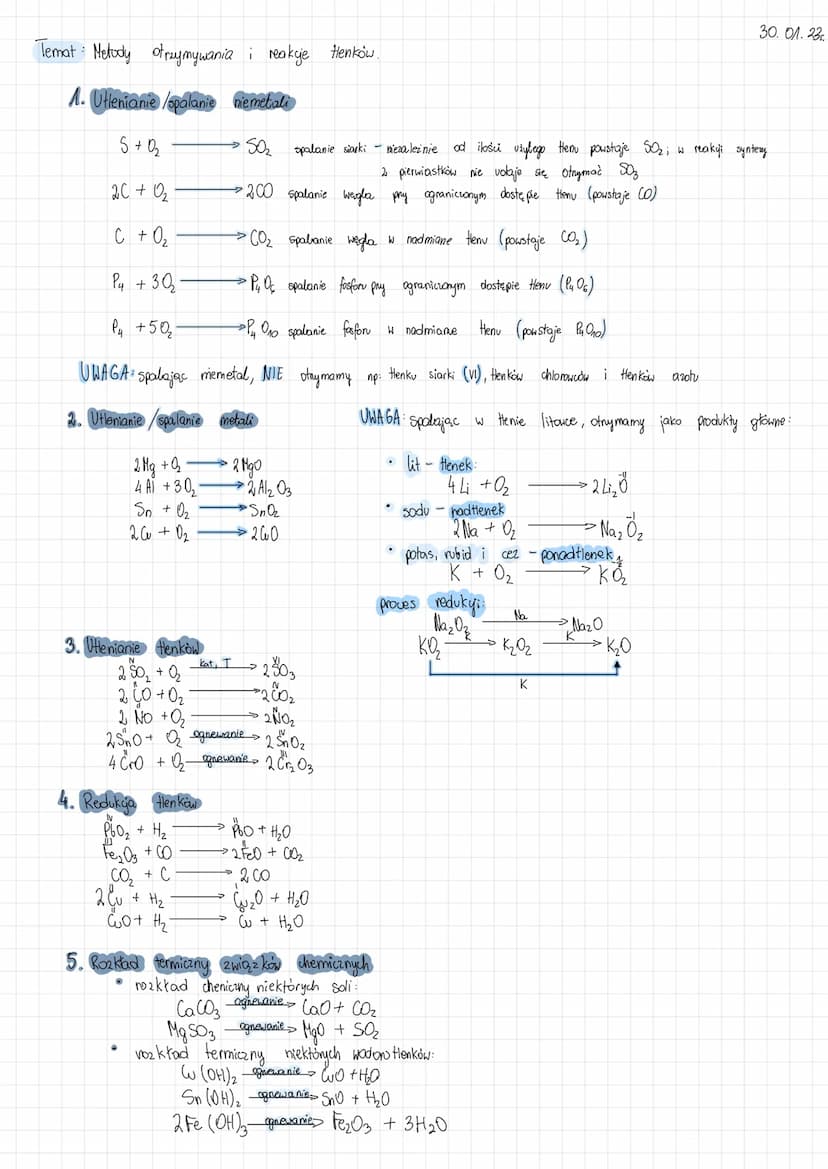 30. 01. 23r.
Temat: Metody otrzymywania i reakcje tlenków.
1. Utlenianie/spalanie niemetali
S + O₂ ⟶ SO₂ spalanie siarki – niezależnie od ilości użytego tlenu powstaje SO₂; w reakcji syntezy
2 pierwiastków nie udaje się otrzymać SO₃
2C + O₂ ⟶ 2CO spalanie węgla przy ograniczonym dostępie tlenu (powstaje CO)
C + O₂ ⟶ CO₂ spalanie węgla w nadmiarze tlenu (powstaje CO₂)
P₄ + 3O₂ ⟶ P₄O₆ spalanie fosforu przy ograniczonym dostępie tlenu (P₄O₆)
P₄ + 5O₂ ⟶ P₄O₁₀ spalanie fosforu w nadmiarze tlenu (powstaje P₄O₁₀)
UWAGA: spalając niemetal, NIE otrzymamy np: tlenku siarki (VI), tlenków chlorowców i tlenków azotu
2. Utlenianie/spalanie metali
2Mg + O₂ ⟶ 2MgO
4Al + 3O₂ ⟶ 2Al₂O₃
Sn + O₂ ⟶ SnO₂
2Cu + O₂ ⟶ 2CuO
UWAGA: Spalając w tlenie litowce, otrzymamy jako produkty główne:
• lit – tlenek:
4Li + O₂ ⟶ 2Li₂O
• sodu – nadtlenek
2Na + O₂ ⟶ Na₂O₂
• potas, rubid i cez – ponadtlenek
K + O₂ ⟶ KO₂
proces redukcji:
Na₂O₂ —Na⟶ Na₂O
KO₂ —K⟶ K₂O₂ —K⟶ K₂O
K
3. Utlenianie tlenków
2SO₂ + O₂ —kat, T⟶ 2SO₃
2CO + O₂ ⟶ 2CO₂
2NO + O₂ ⟶ 2NO₂
2SnO + O₂ —ogrzewanie⟶ 2SnO₂
4CrO + O₂ —ogrzewanie⟶ 2Cr₂O₃
4. Redukcja tlenków
PbO₂ + H₂ ⟶ PbO + H₂O
Fe₂O₃ + CO ⟶ 2FeO + CO₂
CO₂ + C ⟶ 2CO
2Cu + H₂ ⟶ Cu₂O + H₂O
CuO + H₂ ⟶ Cu + H₂O
5. Rozkład termiczny związków chemicznych
• rozkład chemiczny niektórych soli:
CaCO₃ —ogrzewanie⟶ CaO + CO₂
MgSO₃ —ogrzewanie⟶ MgO + SO₂
• rozkład termiczny niektórych wodorotlenków:
Cu(OH)₂ —ogrzewanie⟶ CuO + H₂O
Sn(OH)₂ —ogrzewanie⟶ SnO + H₂O
2Fe(OH)₃ —ogrzewanie⟶ Fe₂O₃ + 3H₂O